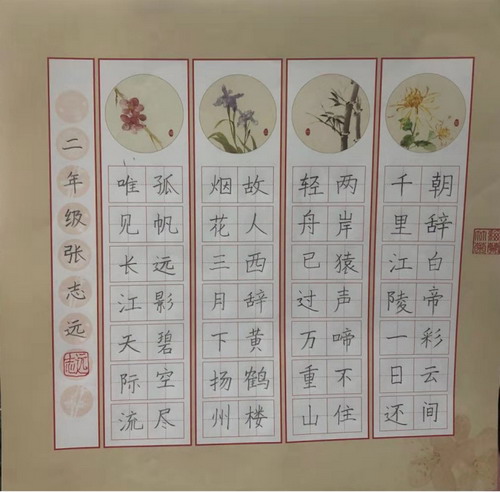 朝辞白帝彩云间
千里江陵一日还
两岸猿声啼不住
轻舟已过万重山
故人西辞黄鹤楼
烟花三月下扬州
孤帆远影碧空尽
唯见长江天际流
二年级张志远